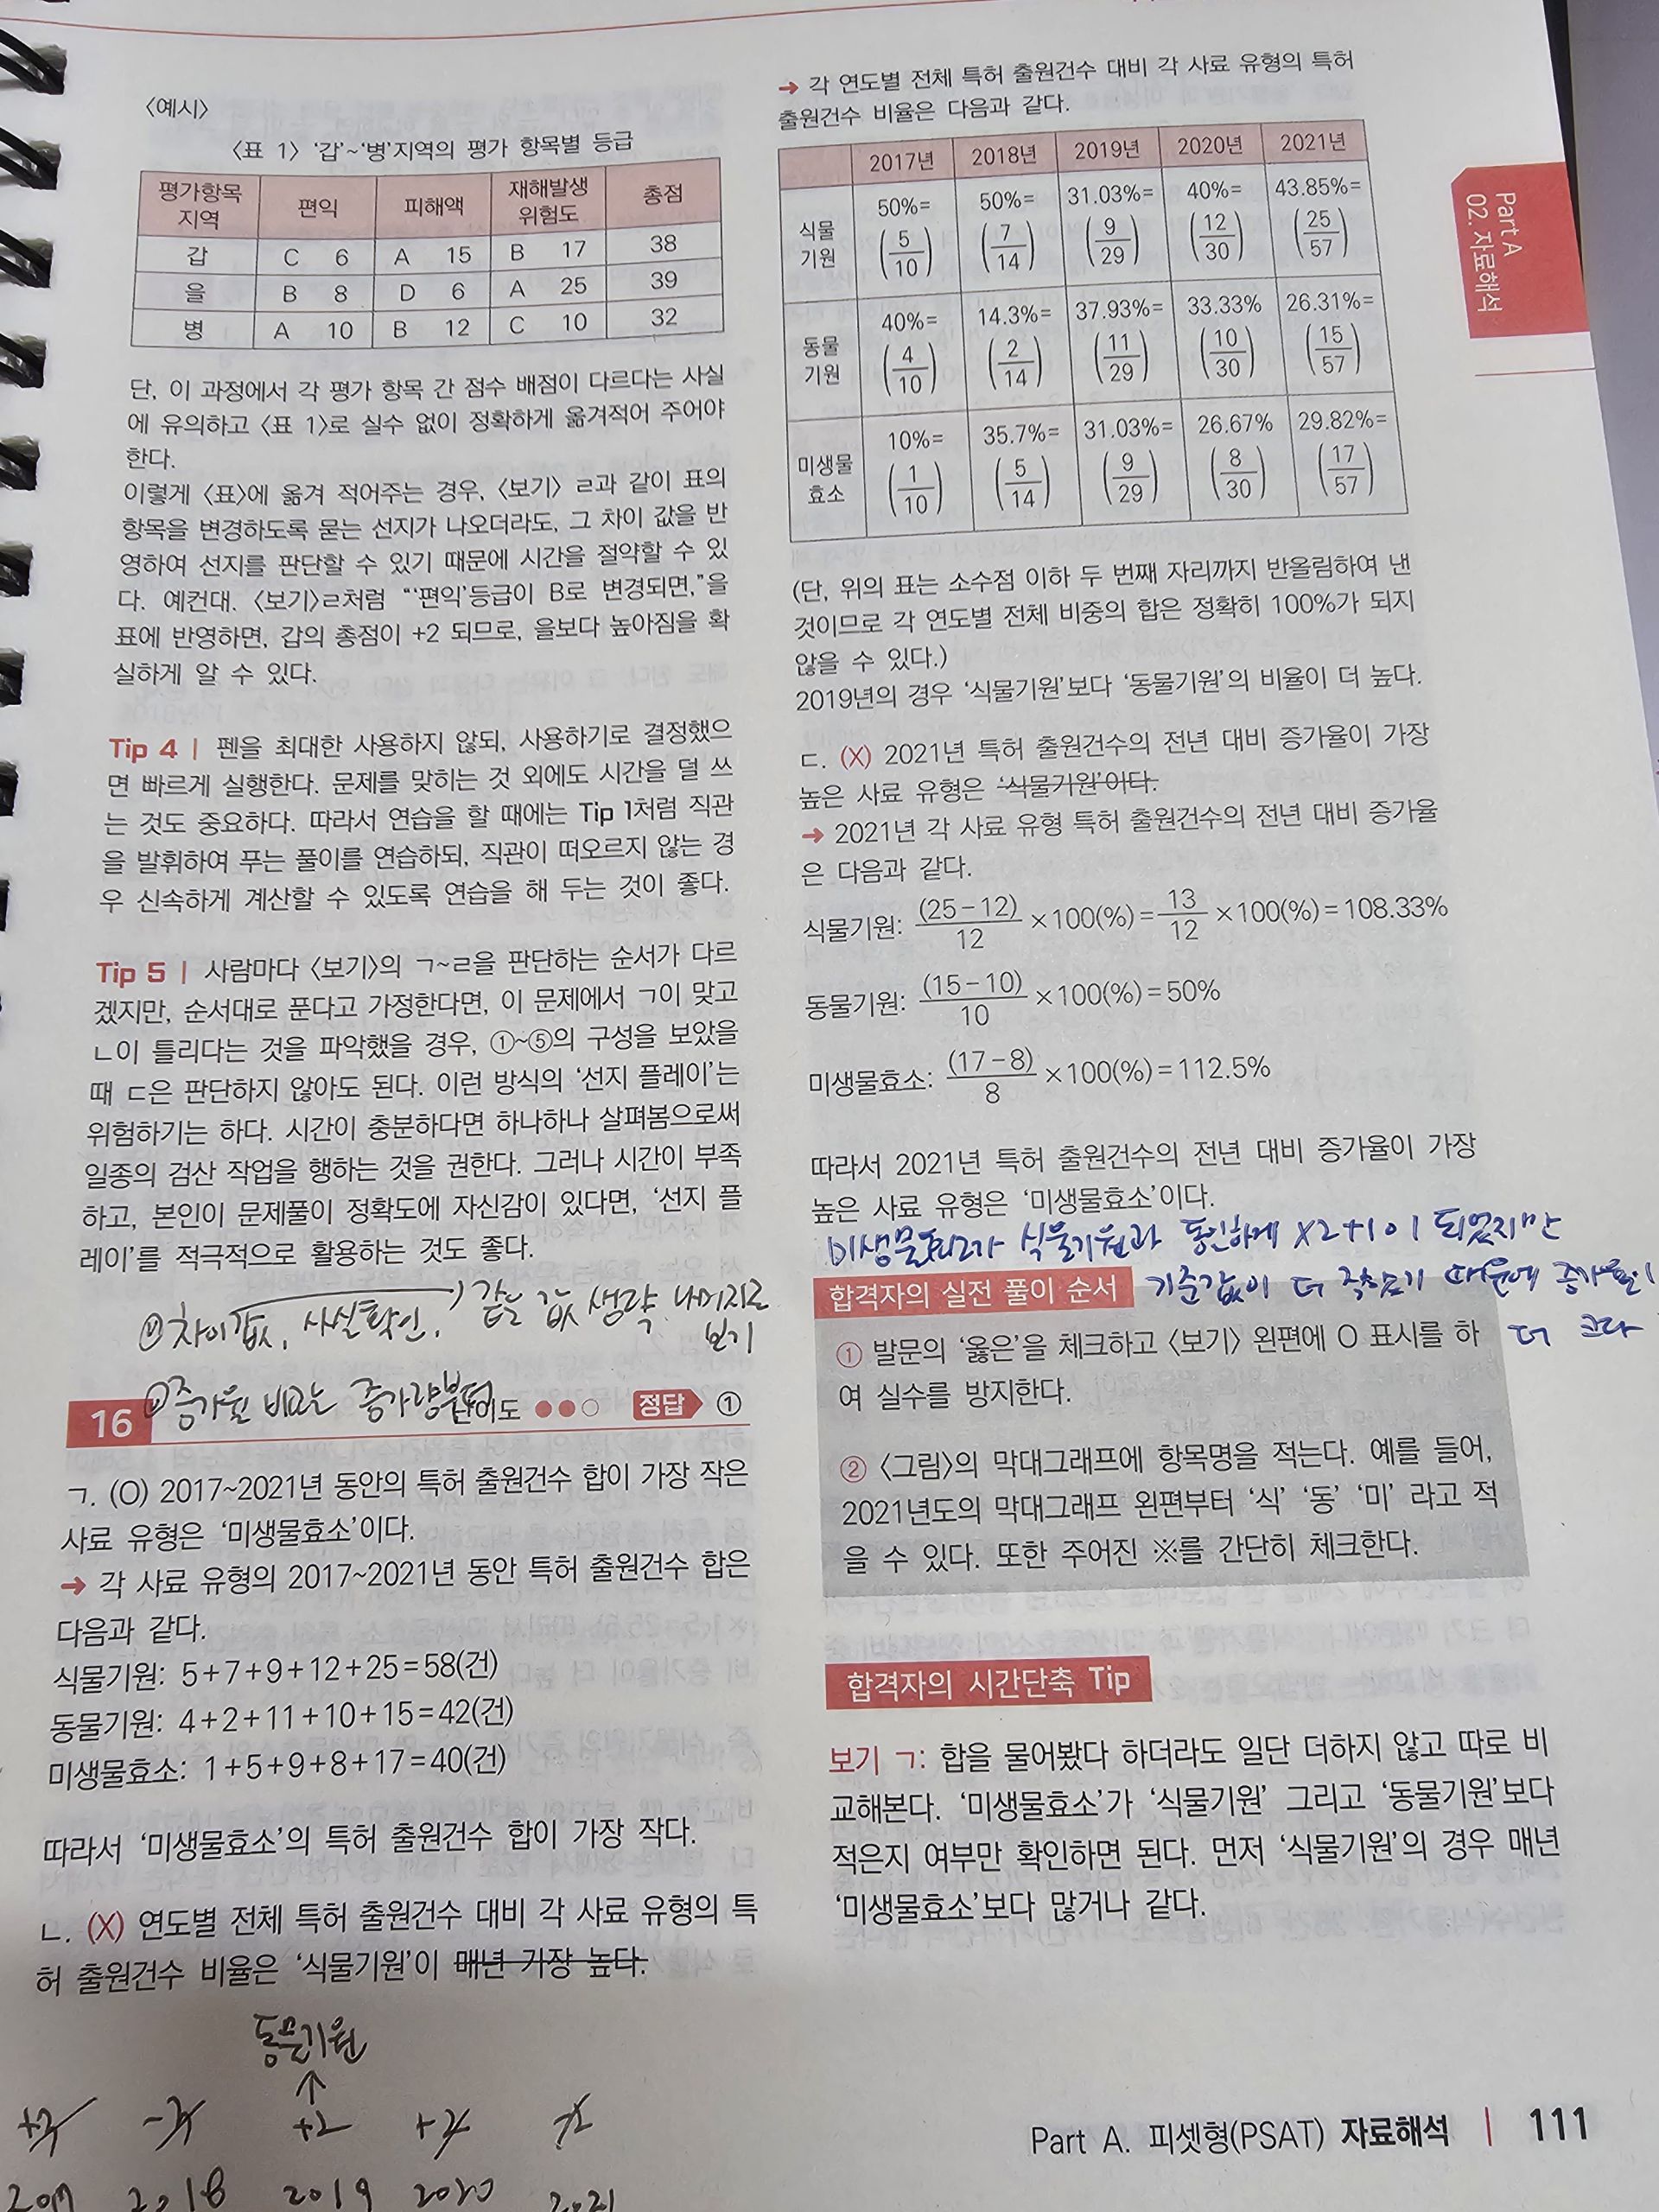 〈예시〉
〈표 1〉 '갑'~'병'지역의 평가 항목별 등급
평가항목 지역 편익 피해액 재해발생 위험도 총점
갑 C 6 A 15 B 17 38
을 B 8 D 6 A 25 39
병 A 10 B 12 C 10 32
단, 이 과정에서 각 평가 항목 간 점수 배점이 다르다는 사실
에 유의하고 〈표 1〉로 실수 없이 정확하게 옮겨적어 주어야
한다.
이렇게 〈표〉에 옮겨 적어주는 경우, 〈보기〉 ㄹ과 같이 표의
항목을 변경하도록 묻는 선지가 나오더라도, 그 차이 값을 반
영하여 선지를 판단할 수 있기 때문에 시간을 절약할 수 있
다. 예컨대. 〈보기〉ㄹ처럼 "'편익'등급이 B로 변경되면,"을
표에 반영하면, 갑의 총점이 +2 되므로, 을보다 높아짐을 확
실하게 알 수 있다.
Tip 4 | 펜을 최대한 사용하지 않되, 사용하기로 결정했으
면 빠르게 실행한다. 문제를 맞히는 것 외에도 시간을 덜 쓰
는 것도 중요하다. 따라서 연습을 할 때에는 Tip 1처럼 직관
을 발휘하여 푸는 풀이를 연습하되, 직관이 떠오르지 않는 경
우 신속하게 계산할 수 있도록 연습을 해 두는 것이 좋다.
Tip 5 | 사람마다 〈보기〉의 ㄱ~ㄹ을 판단하는 순서가 다르
겠지만, 순서대로 푼다고 가정한다면, 이 문제에서 ㄱ이 맞고
ㄴ이 틀리다는 것을 파악했을 경우, ①~⑤의 구성을 보았을
때 ㄷ은 판단하지 않아도 된다. 이런 방식의 '선지 플레이'는
위험하기는 하다. 시간이 충분하다면 하나하나 살펴봄으로써
일종의 검산 작업을 행하는 것을 권한다. 그러나 시간이 부족
하고, 본인이 문제풀이 정확도에 자신감이 있다면, '선지 플
레이'를 적극적으로 활용하는 것도 좋다.
차이값, 사실확인, 같은 값 생략 나머지로
보기
증가율 비교는 증가량부터
16 난이도 ●●○ 정답 ①
ㄱ. (O) 2017~2021년 동안의 특허 출원건수 합이 가장 작은
사료 유형은 '미생물효소'이다.
➜ 각 사료 유형의 2017~2021년 동안 특허 출원건수 합은
다음과 같다.
식물기원: 5+7+9+12+25=58(건)
동물기원: 4+2+11+10+15=42(건)
미생물효소: 1+5+9+8+17=40(건)
따라서 '미생물효소'의 특허 출원건수 합이 가장 작다.
ㄴ. (X) 연도별 전체 특허 출원건수 대비 각 사료 유형의 특
허 출원건수 비율은 '식물기원'이 매년 가장 높다.
동물기원
↑
+2
2017 2018 2019 2020 2021
➜ 각 연도별 전체 특허 출원건수 대비 각 사료 유형의 특허
출원건수 비율은 다음과 같다.
2017년 2018년 2019년 2020년 2021년
식물기원 50%=(5/10) 50%=(7/14) 31.03%=(9/29) 40%=(12/30) 43.85%=(25/57)
동물기원 40%=(4/10) 14.3%=(2/14) 37.93%=(11/29) 33.33%(10/30) 26.31%=(15/57)
미생물효소 10%=(1/10) 35.7%=(5/14) 31.03%=(9/29) 26.67%(8/30) 29.82%=(17/57)
(단, 위의 표는 소수점 이하 두 번째 자리까지 반올림하여 낸
것이므로 각 연도별 전체 비중의 합은 정확히 100%가 되지
않을 수 있다.)
2019년의 경우 '식물기원'보다 '동물기원'의 비율이 더 높다.
ㄷ. (X) 2021년 특허 출원건수의 전년 대비 증가율이 가장
높은 사료 유형은 '식물기원'이다.
➜ 2021년 각 사료 유형 특허 출원건수의 전년 대비 증가율
은 다음과 같다.
식물기원: (25-12)/12 ×100(%)=13/12 ×100(%)=108.33%
동물기원: (15-10)/10 ×100(%)=50%
미생물효소: (17-8)/8 ×100(%)=112.5%
따라서 2021년 특허 출원건수의 전년 대비 증가율이 가장
높은 사료 유형은 '미생물효소'이다.
미생물효소가 식물기원과 동일하게 ×2+1이 되었지만
기준값이 더 작았기 때문에 증가율이
더 크다
합격자의 실전 풀이 순서
① 발문의 '옳은'을 체크하고 〈보기〉 왼편에 O 표시를 하
여 실수를 방지한다.
② 〈그림〉의 막대그래프에 항목명을 적는다. 예를 들어,
2021년도의 막대그래프 왼편부터 '식' '동' '미' 라고 적
을 수 있다. 또한 주어진 ※를 간단히 체크한다.
합격자의 시간단축 Tip
보기 ㄱ: 합을 물어봤다 하더라도 일단 더하지 않고 따로 비
교해본다. '미생물효소'가 '식물기원' 그리고 '동물기원'보다
적은지 여부만 확인하면 된다. 먼저 '식물기원'의 경우 매년
'미생물효소'보다 많거나 같다.
Part A
02. 자료해석
Part A. 피셋형(PSAT) 자료해석 | 111